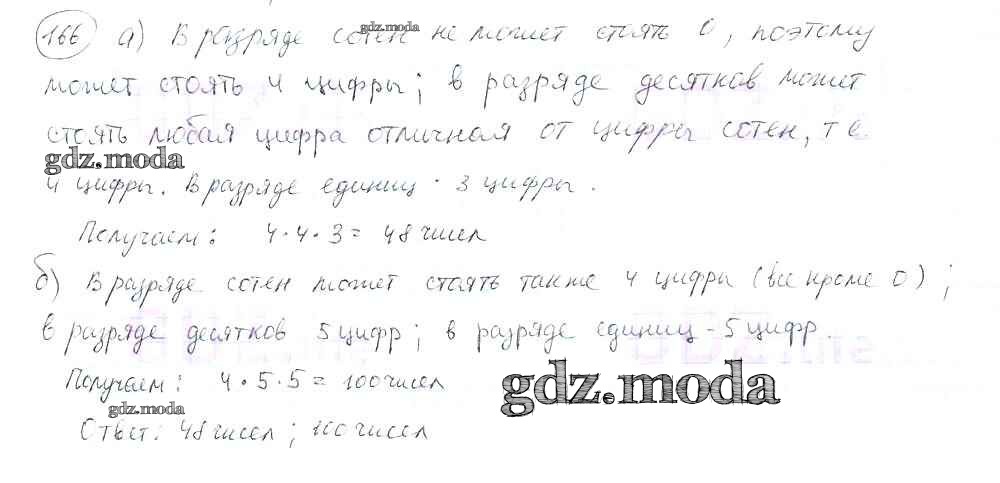 gdz.moda
166 а) В разряде сотен не может стоять 0, поэтому
может стоять 4 цифры; в разряде десятков может
стоять любая цифра отличная от цифры сотен, т е.
gdz.moda
4 цифры. В разряде единиц - 3 цифры.
Получаем: 4·4·3 = 48 чисел
б) В разряде сотен может стоять также 4 цифры (все кроме 0);
в разряде десятков 5 цифр; в разряде единиц - 5 цифр.
Получаем: 4·5·5 = 100 чисел
gdz.moda
gdz.moda
Ответ: 48 чисел; 100 чисел